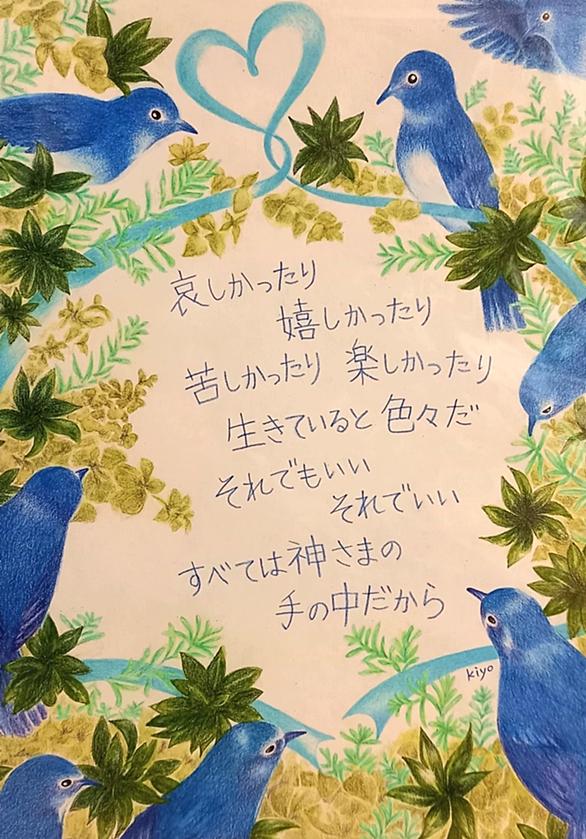 哀しかったり
嬉しかったり
苦しかったり 楽しかったり
生きていると色々だ
それでもいい
それでいい
すべては神さまの
手の中だから
kiyo